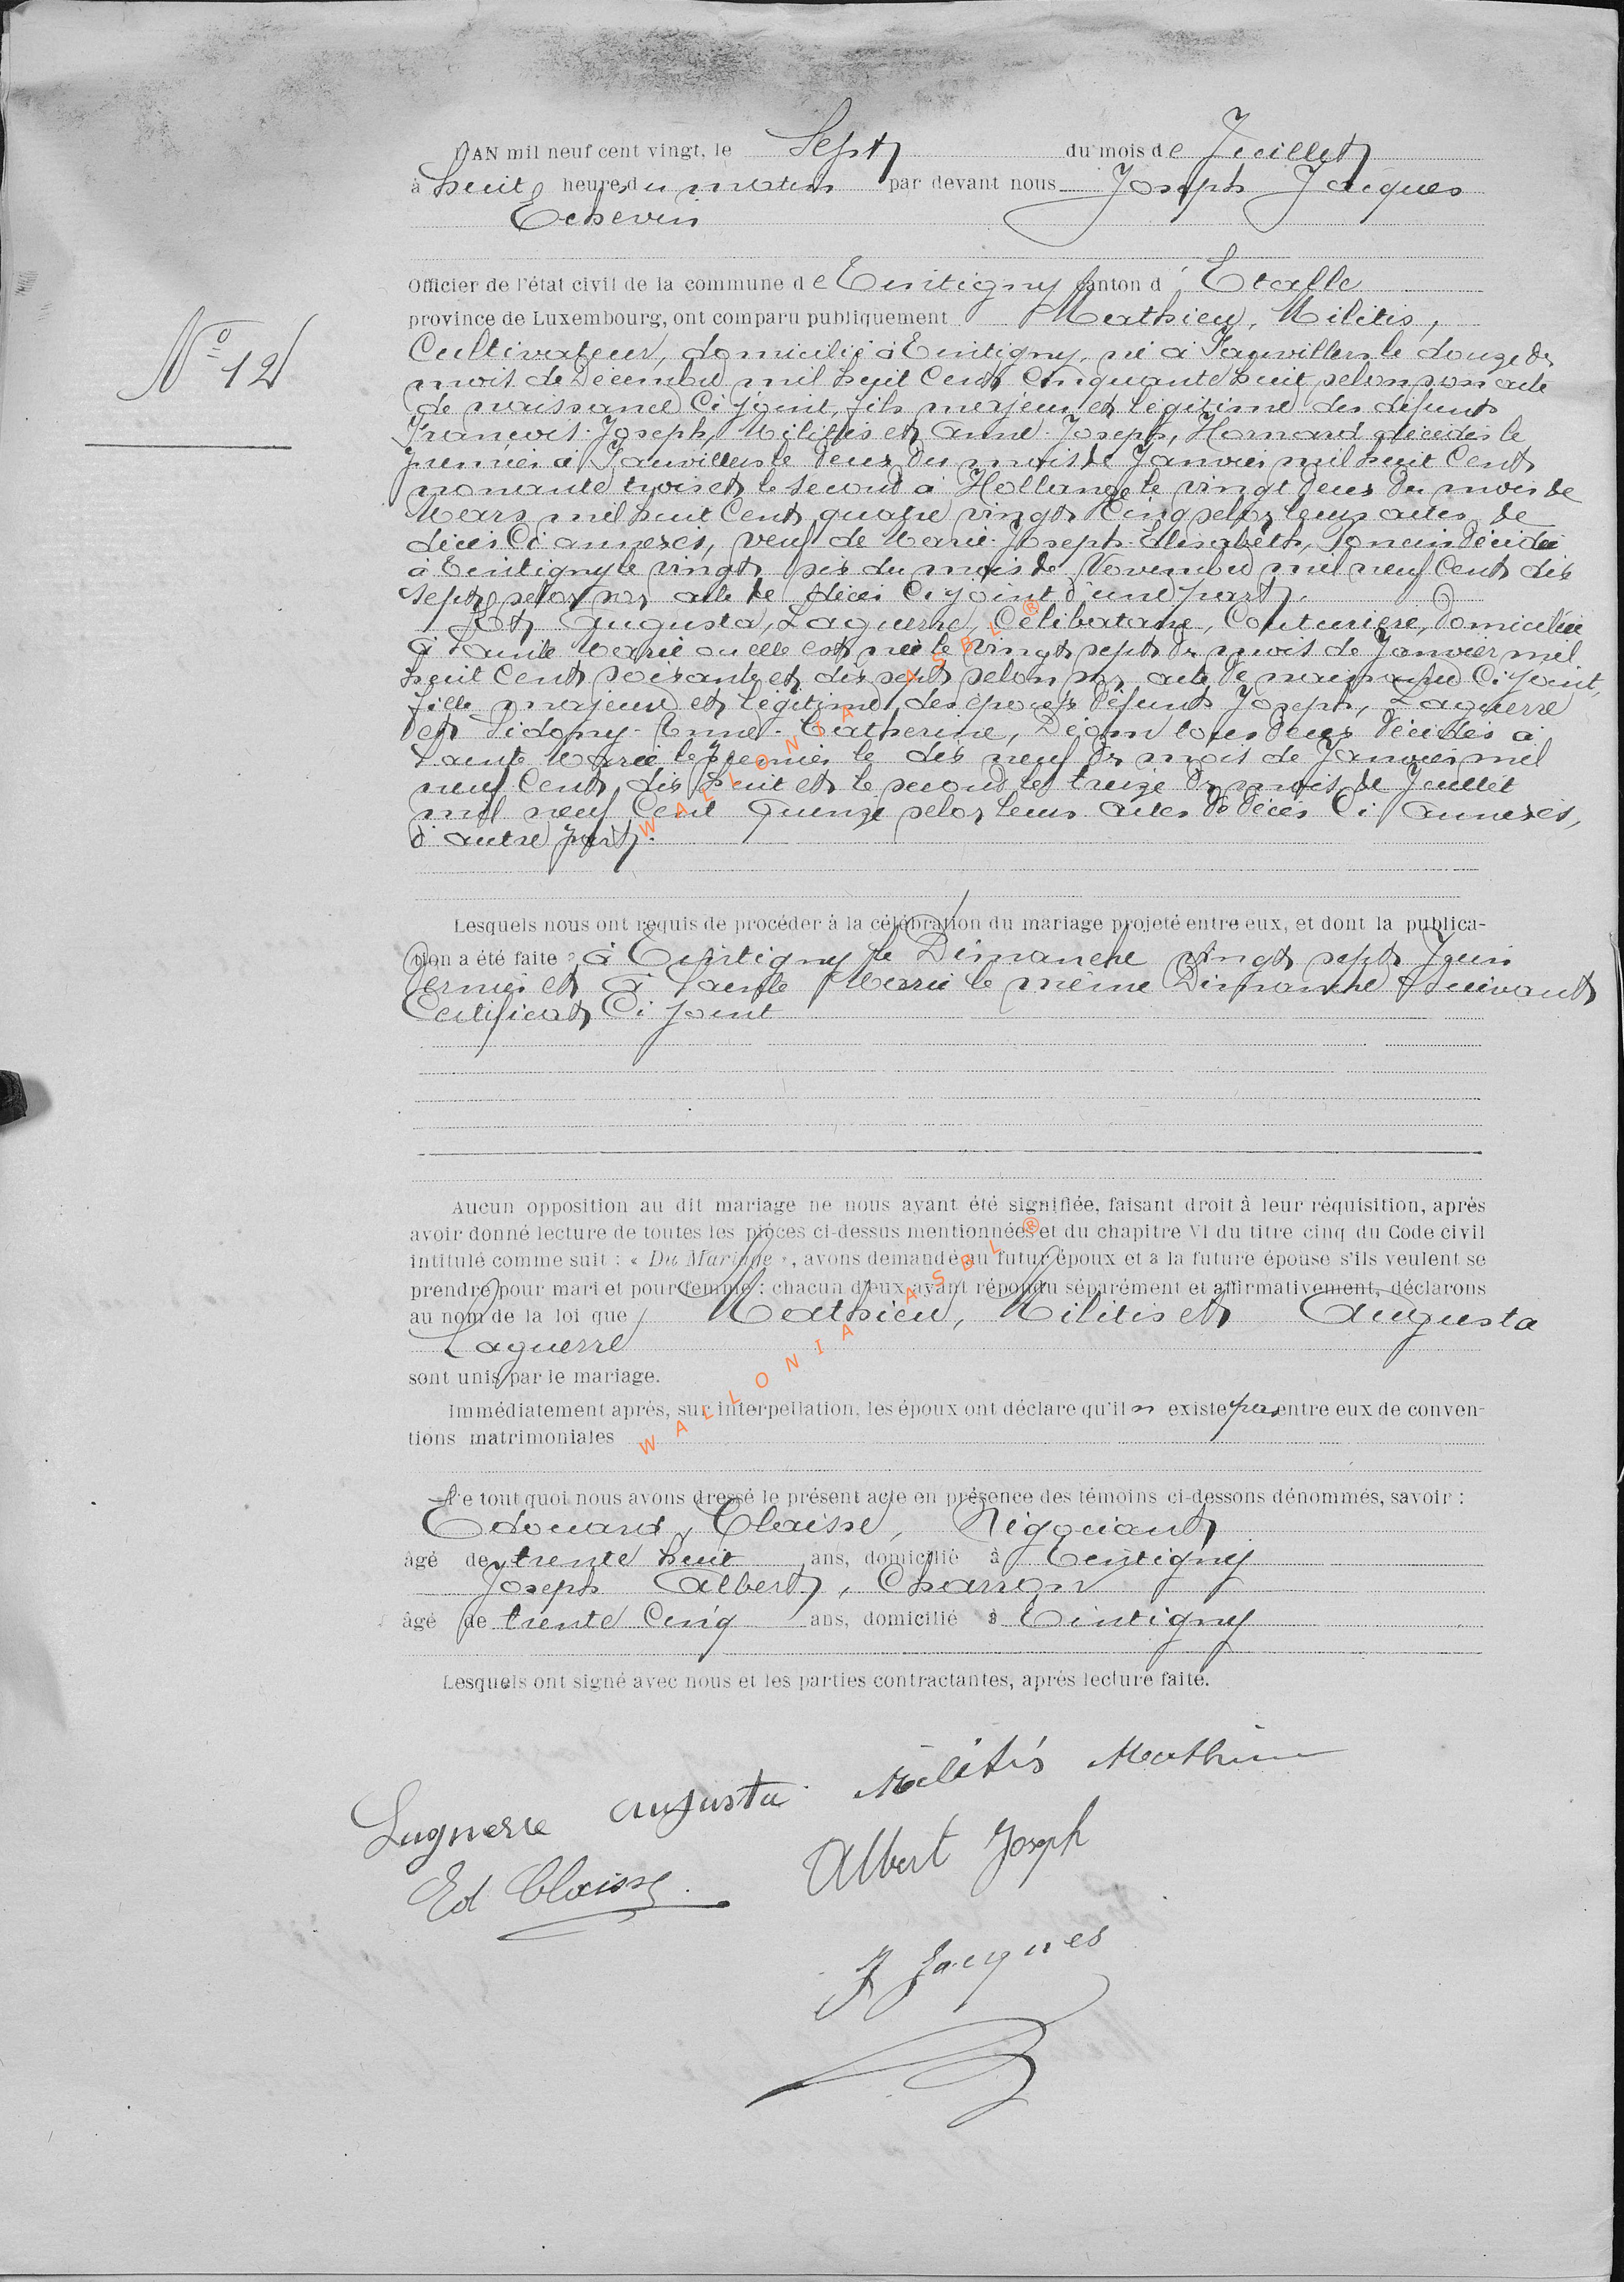 N° 12
L'AN mil neuf cent vingt, le Sept du mois de Juillet
à huit heures du matin par devant nous Joseph Jacques
Echevin
Officier de l'état civil de la commune de Tintigny canton d'Etalle
province de Luxembourg, ont comparu publiquement Mathieu, Militis,
Cultivateur, domicilié à Tintigny, né à Fauvillers le douze du
mois de Décembre mil huit Cent Cinquante huit selon son acte
de naissance Ci joint, fils majeur et légitime des défunts
François-Joseph, Militis et Anne-Joseph, Hornard décédés le
premier à Fauvillers le deux du mois de Janvier mil huit Cent
nonante trois et le second à Hollange le vingt deux du mois de
Mars mil huit Cent quatre vingt Cinq selon leurs actes de
décès Ci annexés, veuf de Marie-Joseph-Elisabeth, décédée
à Tintigny le vingt six du mois de Novembre mil neuf Cent dix
sept selon son acte de décès Ci joint d'une part.
Et Augusta, Laguerre, Célibataire, Couturière, domiciliée
à Sainte Marie où elle est née le vingt sept du mois de Janvier mil
huit Cent soixante et dix sept selon son acte de naissance Ci joint,
fille majeure et légitime des époux défunts Joseph, Laguerre
et Sidony-Anne-Catherine, Déom tous deux décédés à
Sainte Marie le premier le dix neuf du mois de Janvier mil
neuf Cent dix huit et le second le treize du mois de Juillet
mil neuf Cent Quinze selon leurs actes de décès Ci annexés,
d'autre part.
Lesquels nous ont requis de procéder à la célébration du mariage projeté entre eux, et dont la publica-
tion a été faite à Tintigny le Dimanche vingt sept Juin
dernier et à Sainte Marie le même Dimanche Suivant
Certificat Ci joint
Aucun opposition au dit mariage ne nous ayant été signifiée, faisant droit à leur réquisition, après
avoir donné lecture de toutes les pièces ci-dessus mentionnées et du chapitre VI du titre cinq du Code civil
intitulé comme suit : « Du Mariage », avons demandé au futur époux et à la future épouse s'ils veulent se
prendre pour mari et pour femme : chacun d'eux ayant répondu séparément et affirmativement, déclarons
au nom de la loi que Mathieu, Militis et Augusta
Laguerre
sont unis par le mariage.
Immédiatement après, sur interpellation, les époux ont déclaré qu'il n existe pas entre eux de conven-
tions matrimoniales
De tout quoi nous avons dressé le présent acte en présence des témoins ci-dessons dénommés, savoir :
Edouard, Claisse, Négociant
âgé de trente huit ans, domicilié à Tintigny
Joseph Albert, Charron
âgé de trente Cinq ans, domicilié à Tintigny
Lesquels ont signé avec nous et les parties contractantes, après lecture faite.
Laguerre augusta Militis Mathieu
Ed Claisse. Albert Joseph
J Jacques
WALLONIA ASBL ®
WALLONIA ASBL ®